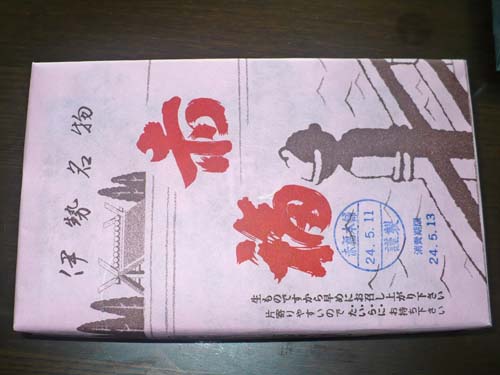 伊勢名物
赤福
赤福本舗
24.5.11
謹製
消費期限
24.5.13
生ものですから早めにお召し上がり下さい
片寄りやすいので たいらに お持ち下さい